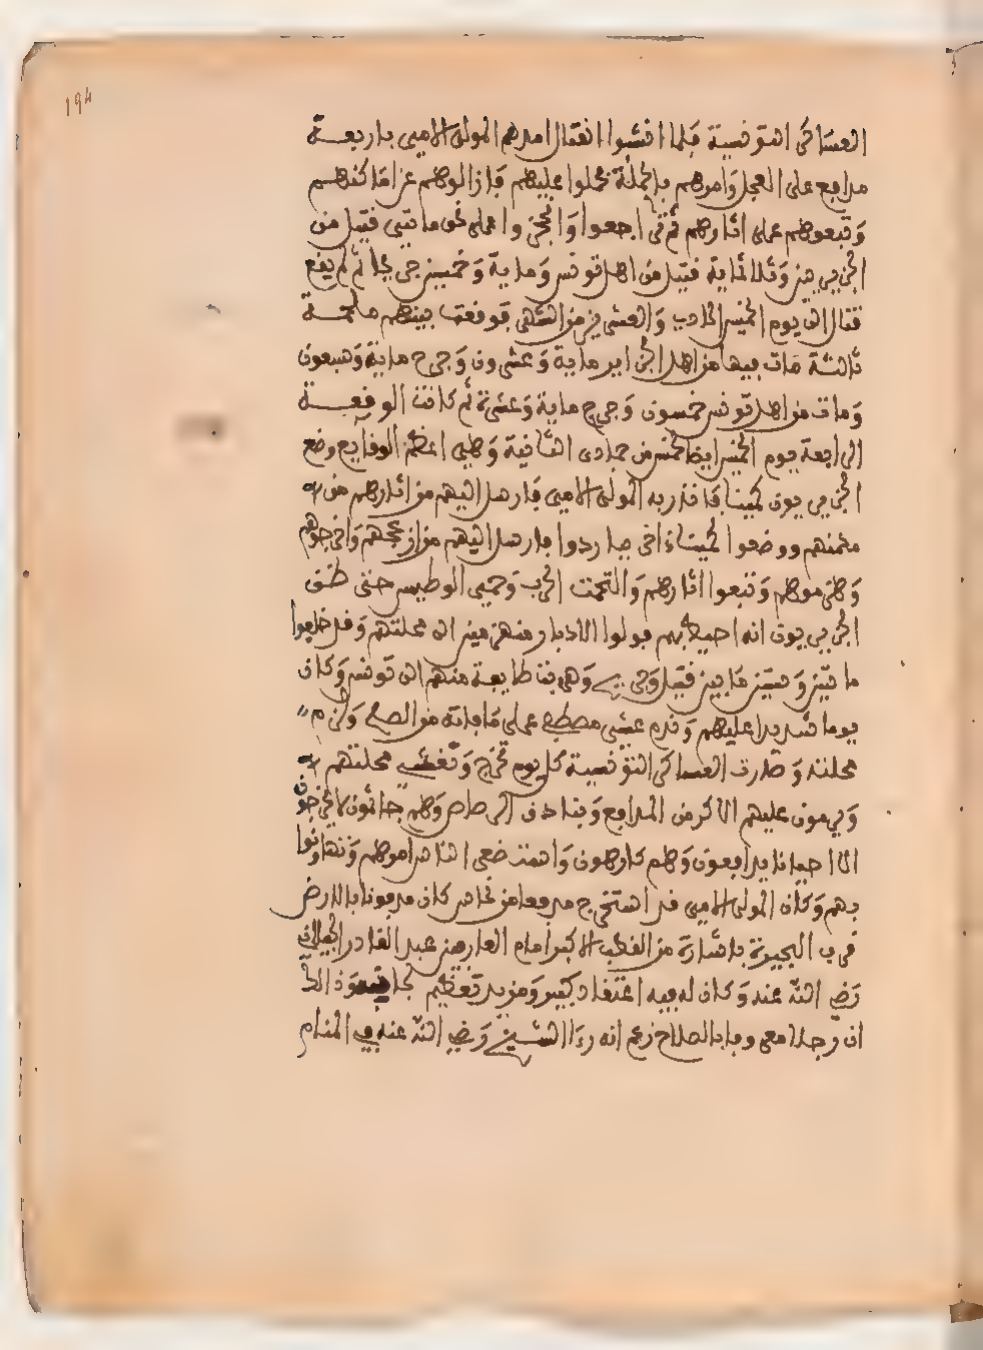 194
العساكر التونسية فلما انشبوا القتال امدهم المولى الامير باربعة
مدافع على العجل وامرهم بالحملة فحملوا عليهم فازالوهم عن اماكنهم
وتبعوهم على اثارهم ثم تراجعوا وانحجزوا على نحو مايتي قتيل من
الجزيريين وثلاثماية قتيل من اهل تونس وماية وخمسين جريحا ثم لم يقع
قتال الى يوم الخميس الحادي والعشرين من الشهر فوقعت بينهم ملحمة
ثالثة مات فيها من اهل الجزاير ماية وعشرون وجرح ماية وسبعون
ومات من اهل تونس خمسون وجرح ماية وعشرة ثم كانت الوقعة
الرابعة يوم الخميس ايضا لخمس من جمادى الثانية وهي اعظم الوقايع وضع
الجزيريون كمينا فانذر به المولى الامير فارسل اليهم من اثارهم من
مكمنهم ووضعوا كمينا اخر فارسل اليهم من ازعجهم واخرجوهم
وهزموهم وتبعوا اثارهم والتحمت الحرب وحمي الوطيس حتى ظن
الجزيريون انه احيط بهم فولوا الادبار منهزمين الى محلتهم وقد خلفوا
مايتين وستين ما بين قتيل وجريح وهربت طايفة منهم الى تونس وكان
يوما شديدا عليهم وندم عشي مصطفى على ما فاته من الصلح ولزم
محلته وصارت العساكر التونسية كل يوم تخرج وتغشى محلتهم
ويرمون عليهم الاكر من المدافع وبنادق الرصاص وهم جاثمون لا يخرجون
الا احيانا يدافعون وهم كارهون واستضعف الناس امرهم وتهاونوا
بهم وكان المولى الامير قد استخرج مدفعا من نحاس كان مدفونا بالارض
قرب البحيرة باشارة من القطب الاكبر امام العارفين عبد القادر الجيلاني
رضي الله عنه وكان له فيه اعتقاد كبير ومزيد تعظيم لجانبه وذالك
ان رجلا معروفا بالصلاح زعم انه رءا الشيخ رضي الله عنه في المنام